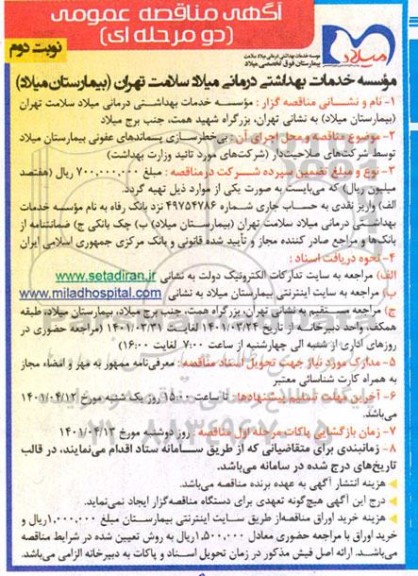 آگهی مناقصه عمومی
(دو مرحله ای)
نوبت دوم
میلاد
موسسه خدمات بهداشتی درمانی میلاد سلامت
بیمارستان فوق تخصصی میلاد
مؤسسه خدمات بهداشتی درمانی میلاد سلامت تهران (بیمارستان میلاد)
۱- نام و نشانی مناقصه گزار : مؤسسه خدمات بهداشتی درمانی میلاد سلامت تهران
(بیمارستان میلاد) به نشانی تهران، بزرگراه شهید همت، جنب برج میلاد
۲- موضوع مناقصه و محل اجرای آن: بی‌خطرسازی پسماندهای عفونی بیمارستان میلاد
توسط شرکت‌های صلاحیت‌دار (شرکت‌های مورد تائید وزارت بهداشت)
۳- نوع و مبلغ تضمین سپرده شرکت در مناقصه : مبلغ ۷۰۰,۰۰۰,۰۰۰ ریال (هفتصد
میلیون ریال) که می‌بایست به صورت یکی از موارد ذیل تهیه گردد.
الف) واریز نقدی به حساب جاری شماره ۴۹۷۵۴۷۸۶ نزد بانک رفاه به نام مؤسسه خدمات
بهداشتی درمانی میلاد سلامت تهران (بیمارستان میلاد) ب) چک بانکی ج) ضمانتنامه از
بانک‌ها و مراجع صادر کننده مجاز و تأیید شده قانونی و بانک مرکزی جمهوری اسلامی ایران
۴- نحوه دریافت اسناد :
الف) مراجعه به سایت تدارکات الکترونیک دولت به نشانی www.setadiran.ir
ب) مراجعه به سایت اینترنتی بیمارستان میلاد به نشانی www.miladhospital.com
ج) مراجعه مستقیم به نشانی تهران، بزرگراه همت، جنب برج میلاد، بیمارستان میلاد، طبقه
همکف، واحد دبیرخانه از تاریخ ۱۴۰۱/۰۳/۲۴ لغایت ۱۴۰۱/۰۳/۳۱ (مراجعه حضوری در
روزهای اداری از شنبه الی چهارشنبه از ساعت ۷:۰۰ لغایت ۱۶:۰۰)
۵- مدارک مورد نیاز جهت تحویل اسناد مناقصه : معرفی‌نامه ممهور به مهر و امضاء مجاز
به همراه کارت شناسائی معتبر
۶- آخرین مهلت تسلیم پیشنهادها : تا ساعت ۱۵:۰۰ روز یک شنبه مورخ ۱۴۰۱/۰۴/۱۲
می‌باشد.
۷- زمان بازگشایی پاکات مرحله اول مناقصه : روز دوشنبه مورخ ۱۴۰۱/۰۴/۱۳
۸- زمانبندی برای متقاضیانی که از طریق سامانه ستاد اقدام می‌نمایند، در قالب
تاریخ‌های درج شده در سامانه می‌باشد.
هزینه انتشار آگهی به عهده برنده مناقصه می‌باشد.
درج این آگهی هیچگونه تعهدی برای دستگاه مناقصه‌گزار ایجاد نمی‌نماید.
هزینه خرید اوراق مناقصه‌از طریق سایت اینترنتی بیمارستان مبلغ ۱,۰۰۰,۰۰۰ریال و
خرید اوراق با مراجعه حضوری معادل ۱,۵۰۰,۰۰۰ریال به روش تعیین شده در شرایط مناقصه
می‌باشد. ارائه اصل فیش مذکور در زمان تحویل اسناد و پاکات به دبیرخانه الزامی می‌باشد.